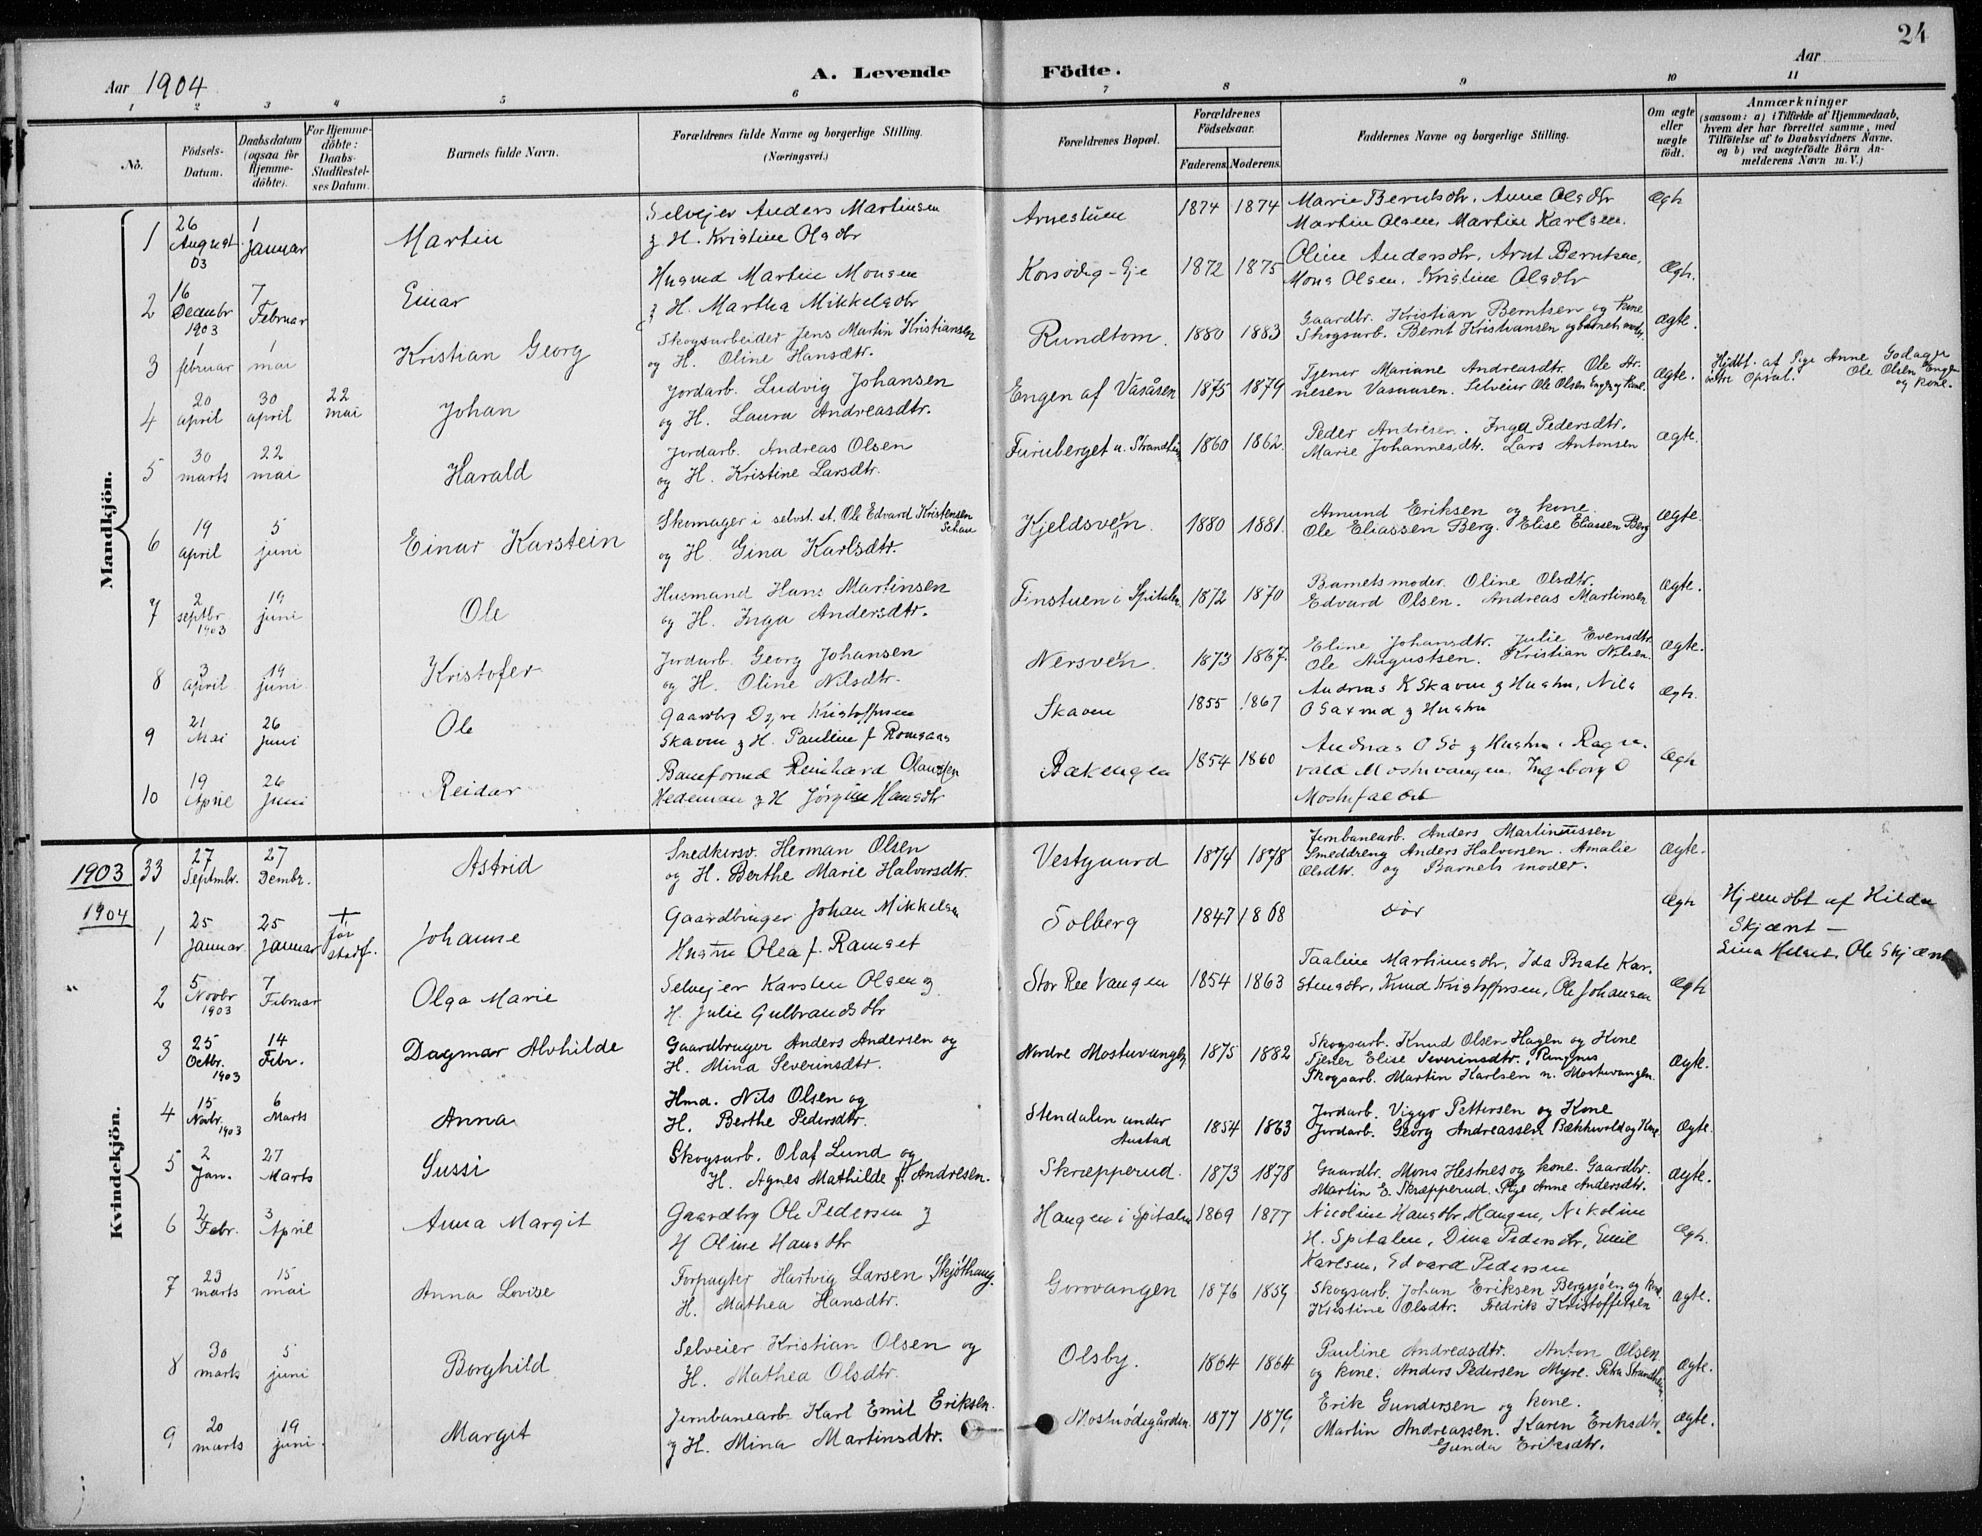 24
Aar 1904
A. Levende Födte.
Aar
1 2 3 4 5 6 7 8 9 10 11
No.
Födsels-Datum.
Daabsdatum (ogsaa for Hjemme-döbte).
For Hjemme-döbte: Daabs-Stadfæstel-ses Datum.
Barnets fulde Navn.
Forældrenes fulde Navne og borgerlige Stilling.
(Næringsvei.)
Forældrenes Bopæl.
Forældrenes Födselsaar.
Faderens. Moderens.
Faddernes Navne og borgerlige Stilling.
Om ægte eller uægte födt.
Anmærkninger
(saasom: a) i Tilfælde af Hjemmedaab,
hvem der har forrettet samme, med
Tilföielse af to Daabsvidners Navne,
og b) ved uægtefödte Börn An-
melderens Navn m. V.)
Mandkjön.
1 26 August 03 1 Januar Martin
Selvejer Anders Martinsen
& H. Kristine Olsdtr
Arnestuen 1874 1874
Marie Berntsdtr, Anne Olsdtr
Martin Olsen, Martin Karlsen.
Ægte
2 16 Decembr 1903 7 Februar Einar
Husmd Martin Monsen
& H. Martha Mikkelsdtr
Korsödeg-Eje 1872 1875
Oline Andersdtr, Arnt Berntsen,
Mons Olsen, Kristine Olsdtr
Ægte.
3 1 februar 1 mai Kristian Georg
Skogsarbeider Jens Martin Kristiansen
og H. Oline Hansdtr.
Rundtom. 1880 1883
Gaardbr. Kristian Berntsen og kone
Skogsarb. Bernt Kristiansen og barnets moder
Ægte.
4 20 april 30 april 22 mai Johan
Jordarb. Ludvig Johansen
og H. Laura Andreasdtr.
Engen af Vasåsen 1875 1879
Tjener Mariane Andreasdtr. Ole Ar-
nesen Vasaasen. Selveier Ole Olsen Engen og Kone.
Ægte.
Hjdbt. af Pige Anne Godager
østre Opsal. Ole Olsen Engen
og kone.
5 30 marts 22 mai Harald
Jordarb. Andreas Olsen
og H. Kristine Larsdtr.
Furuberget u. Strandhei 1860 1862.
Peder Andresen. Inga Pedersdtr.
Marie Johannesdtr. Lars Antonsen
Ægte.
6 19 april 5 juni Einar Karstein
Skomager i selvst. st. Ole Edvard Kristensen
Schau
og H. Gina Karlsdtr.
Kjeldsveen. 1880 1881.
Amund Eriksen og kone.
Ole Eliassen Berg. Elise Eliassen Berg
Ægte.
7 2 septbr 1903 19 juni Ole
Husmand Hans Martinsen
og H. Inga Andersdtr.
Finstuen i Spitalen 1872 1870
Barnets moder. Oline Olsdtr.
Edvard Olsen. Andreas Martinsen
Ægte.
8 3 april 19 juni. Kristofer
Jordarb. Georg Johansen
og H. Oline Nilsdtr.
Nersveen. 1873 1867.
Eline Johansdtr. Julie Evensdtr.
Ole Augustsen. Kristian Nilsen.
Ægte.
9 21 Mai 26 Juni Ole
Gaardbg Dyre Kristoffersen
Skaven & H. Pauline f. Romsaas
Skaven 1855 1867
Andreas K Skaven & Hustru, Nils
O Saxrud & Hustru
Ægte
10 19 April 26 Juni Reidar
Baneformd Reinhard Olaussen
Hedeman & H Jørgine Hansdtr
Bækengen 1854 1860
Andreas O Sø & Hustru, Ragn-
vald Mostuvangen, Ingeborg O
Mostufaldet
Ægte
Kvindekjön.
1903 33 27 Septmbr. 27 Dembr. Astrid
Snedkersv. Herman Olsen
og H. Berthe Marie Halvorsdtr.
Vestgaard 1874 1878
Jernbanearb. Anders Martinussen
Smeddreng Anders Halvorsen. Amalie
Olsdtr. og Barnets moder.
Ægte.
1904 1 25 Januar 25 Januar + før stadf. Johanne
Gaardbruger Johan Mikkelsen
Hustru Olea f. Ramset
Solberg 1847 1868
dør
Ægte
Hjemdbt af Hilda
Skjænt —
Lina Ole Skjænt
2 5 Novbr 1903 7 Februar Olga Marie
Selvejer Karsten Olsen &
H. Julie Gulbrandsdtr
Stor Ree Vangen 1854 1863
Taaline Martinusdtr, Ida Beate Kar-
stensdtr, Knud Kristoffersen, Ole Johansen
Ægte
3 25 Octbr. 1903 14 Febr. Dagmar Alvhilde
Gaardbruger Anders Andersen og
H. Mina Severinsdtr.
Nordre Mostuvangen 1875 1882
Skogsarb. Knud Olsen Hagen og Kone
Tjener Elise Severinsdtr. Ringnes
Skogsarb. Martin Karlsen n. Mostuvangen.
Ægte.
4 15 Novbr. 1903 6 Marts Anna
Hmd. Nils Olsen og
H. Berthe Pedersdtr.
Stendalen under
Austad
1854 1863
Jordarb. Viggo Pettersen og Kone
Jordarb. Georg Andreassen Bækkevold og Kone
Ægte.
5 2 Jan. 27 Marts Sussi
Skogsarb. Olaf Lund og
H. Agnes Mathilde f. Andresen.
Skræpperud. 1873 1878
Gaardbr. Mons Hestnes og kone. Gaardbr.
Martin E. Skræpperud. Pige Anne Andersdtr.
Ægte.
6 2 Febr. 3 April Anna Margit
Gaardbg Ole Pedersen &
H Oline Hansdtr
Haugen i Spitalen 1869 1877
Nicoline Hansdtr, Haugen, Nikoline
H. Spitalen, Dina Pedersdtr, Emil
Karlsen, Edvard Pedersen
Ægte.
7 23 marts 15 mai Anna Lovise
Forpagter Hartvig Larsen Skjøthaug.
H. Mathea Hansdtr.
Gorovangen 1876 1859
Skogsarb. Johan Eriksen Bergsjøen og kone.
Kristine Olsdtr. Fredrik Kristoffersen
Ægte.
8 30 marts 5 juni Borghild
Selveier Kristian Olsen og
H. Mathea Olsdtr.
Olsby. 1864 1864
Pauline Andreasdtr. Anton Olsen
og kone. Anders Pedersen Myre. Petra Strandheim
Ægte.
9 20 marts 19 juni. Margit
Jernbanearb. Karl Emil Eriksen.
og H. Mina Martinsdtr.
Mostuødegården 1877 1879
Erik Gundersen og kone.
Martin Andreassen. Karen Eriksdtr.
Gunda Eriksdtr.
Ægte.